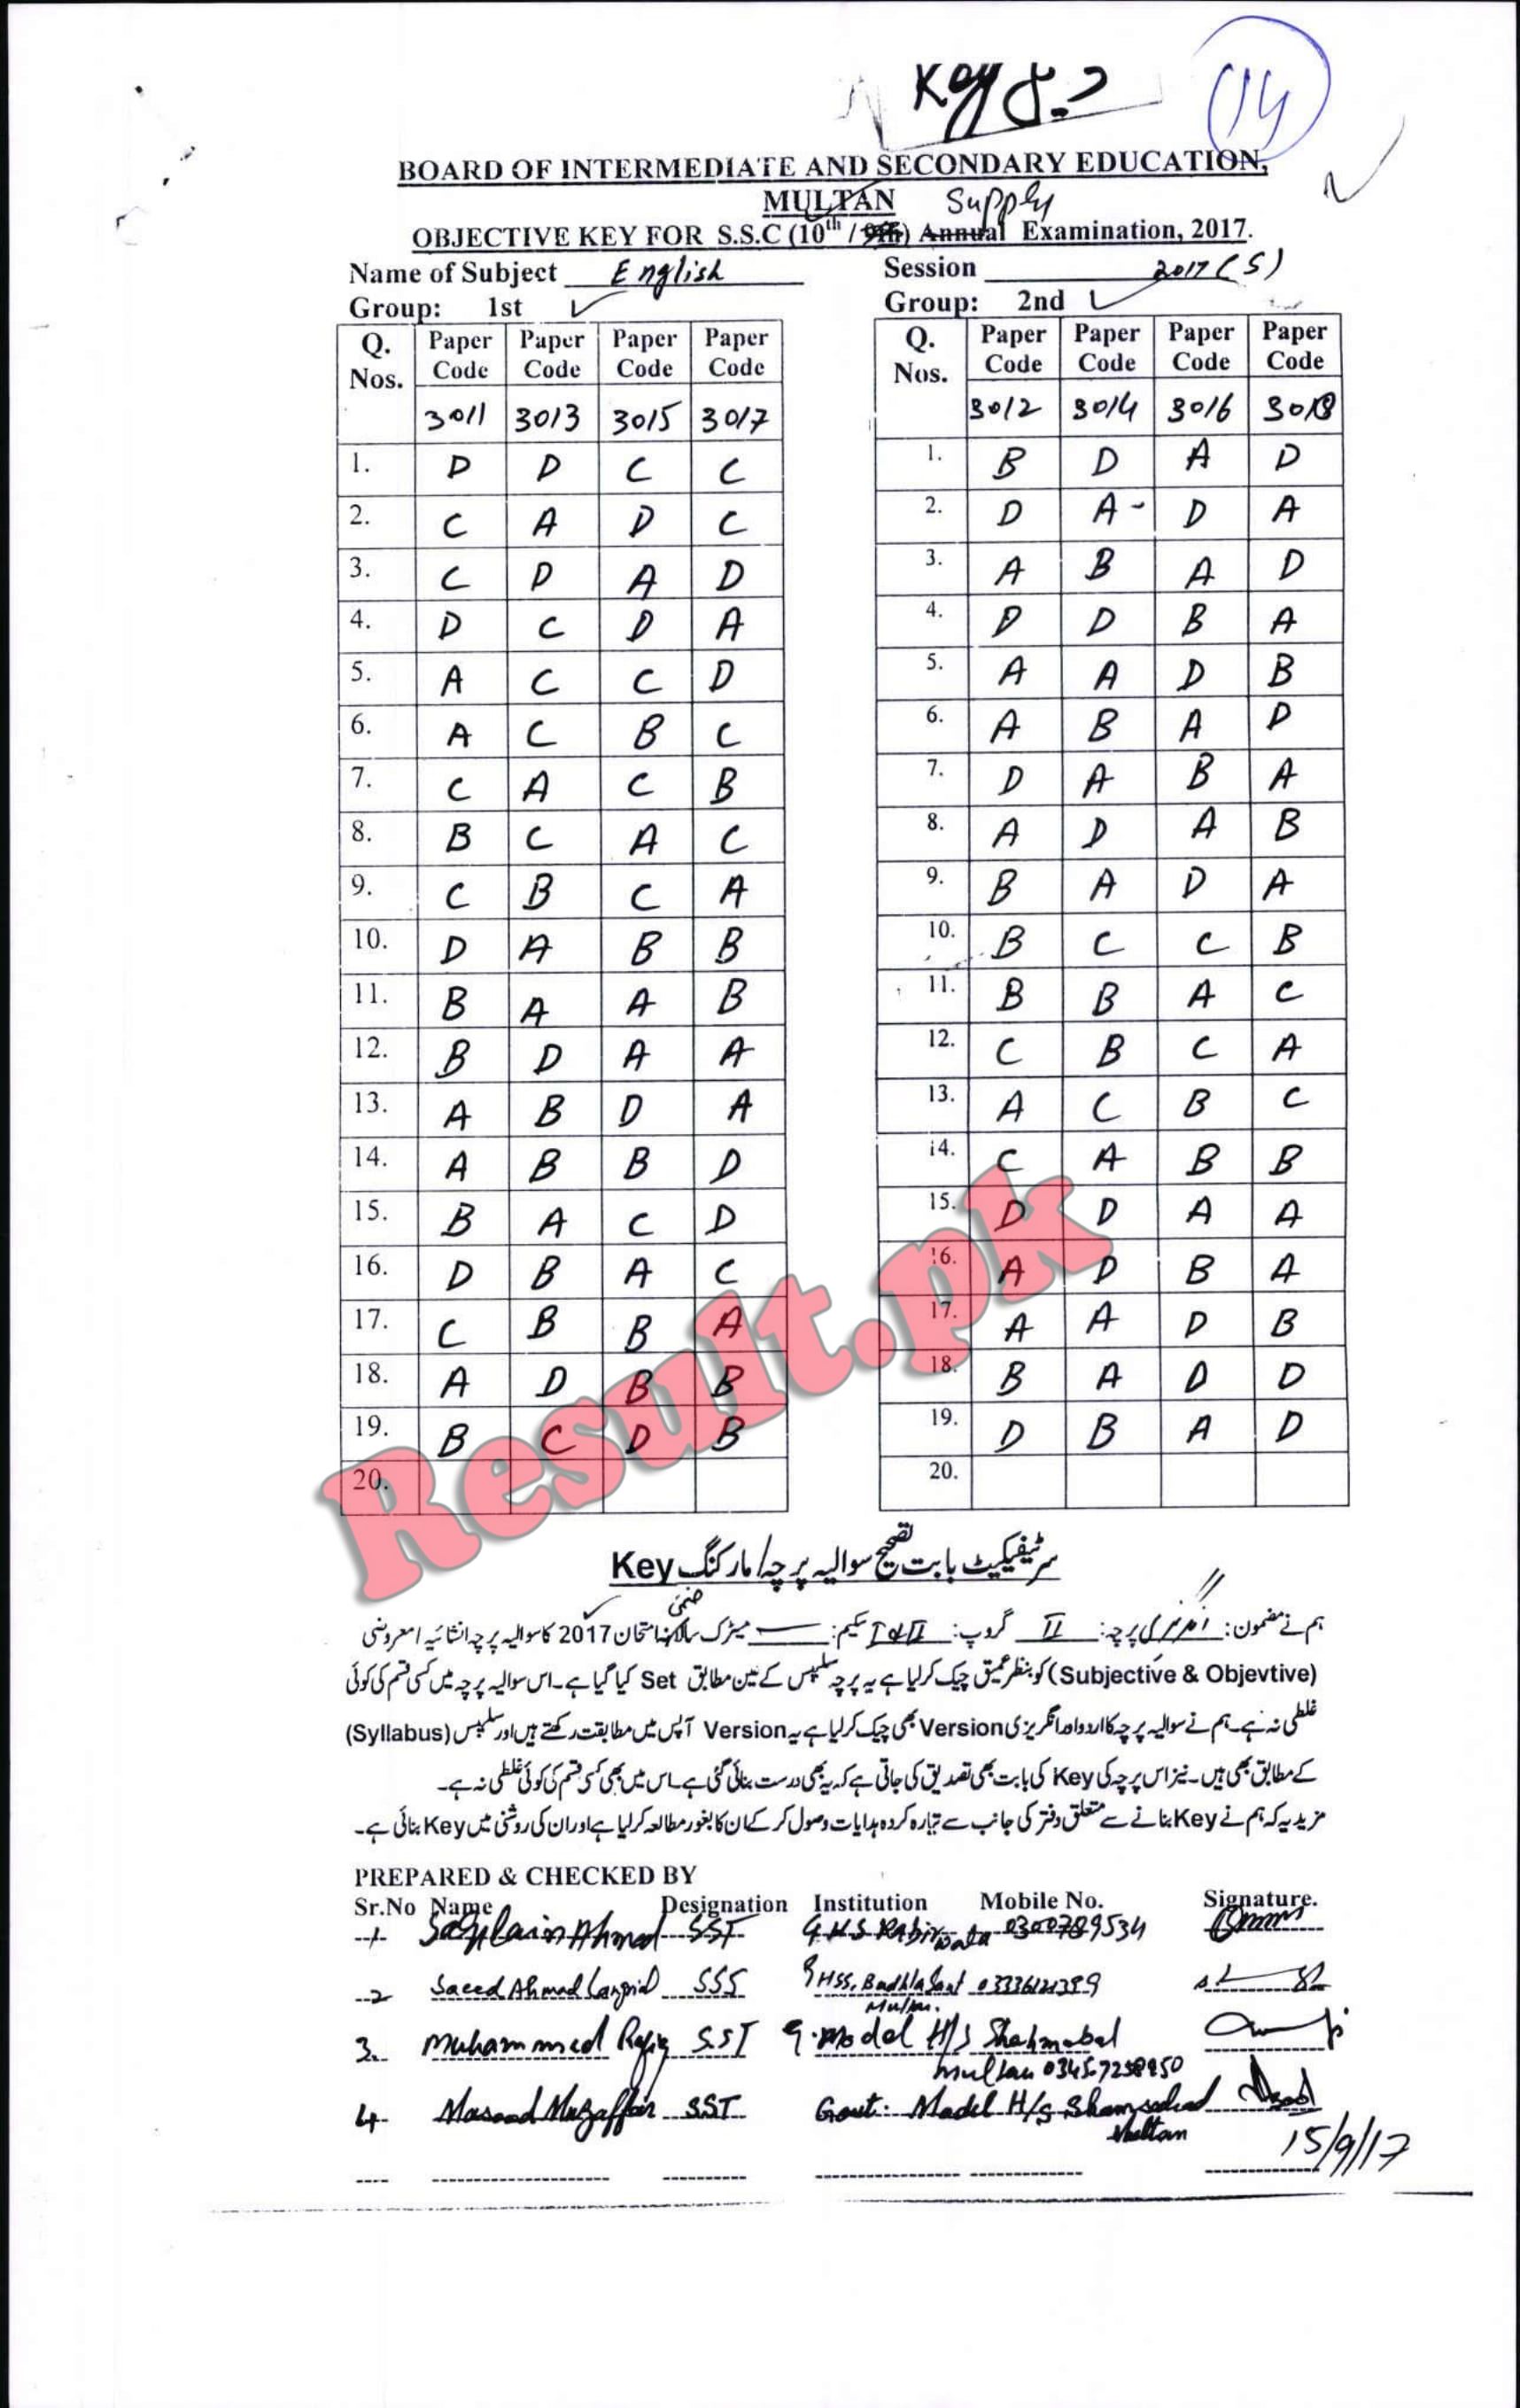 Key
14
BOARD OF INTERMEDIATE AND SECONDARY EDUCATION,
MULTAN Supply
OBJECTIVE KEY FOR S.S.C (10th / 9th) Annual Examination, 2017.
Name of Subject English Session 2017(S)
Group: 1st Group: 2nd
Q. Nos. Paper Code Paper Code Paper Code Paper Code Q. Nos. Paper Code Paper Code Paper Code Paper Code
3011 3013 3015 3017 3012 3014 3016 3018
1. D D C C 1. B D A D
2. C A D C 2. D A D A
3. C D A D 3. A B A D
4. D C D A 4. D D B A
5. A C C D 5. A A D B
6. A C B C 6. A B A D
7. C A C B 7. D A B A
8. B C A C 8. A D A B
9. C B C A 9. B A D A
10. D A B B 10. B C C B
11. B A A B 11. B B A C
12. B D A A 12. C B C A
13. A B D A 13. A C B C
14. A B B D 14. C A B B
15. B A C D 15. D D A A
16. D B A C 16. A D B A
17. C B B A 17. A A D B
18. A D B B 18. B A D D
19. B C D B 19. D B A D
20. 20.
Result.pk
سرٹیفکیٹ بابت تصحیح سوالیہ پرچہ/مارکنگ Key
ہم نے مضمون: انگریزی پرچہ: II گروپ: I & II سکیم: میٹرک سالانہ ضمنی امتحان 2017 کا سوالیہ پرچہ انشائیہ / معروضی
(Subjective & Objevtive) کو بنظر عمیق چیک کر لیا ہے یہ پرچہ سلیبس کے عین مطابق Set کیا گیا ہے۔ اس سوالیہ پرچہ میں کسی قسم کی کوئی
غلطی نہ ہے۔ ہم نے سوالیہ پرچہ کا اردو اور انگریزی Version بھی چیک کر لیا ہے یہ Version آپس میں مطابقت رکھتے ہیں اور سلیبس (Syllabus)
کے مطابق بھی ہیں۔ نیز اس پرچہ کی Key کی بابت بھی تصدیق کی جاتی ہے کہ یہ بھی درست بنائی گئی ہے۔ اس میں بھی کسی قسم کی کوئی غلطی نہ ہے۔
مزید یہ کہ ہم نے Key بنانے سے متعلق دفتر کی جانب سے تیار کردہ ہدایات وصول کر کے ان کا بغور مطالعہ کر لیا ہے اور ان کی روشنی میں Key بنائی ہے۔
PREPARED & CHECKED BY
Sr.No Name Designation Institution Mobile No. Signature.
1 Ahmed SST GHS
2 Saeed Ahmad SSS
3. Muhammed Rafiq SST G. Model H/S
Multan
4 Masood Muzaffar SST Govt. Model H/S
Multan
15/9/17